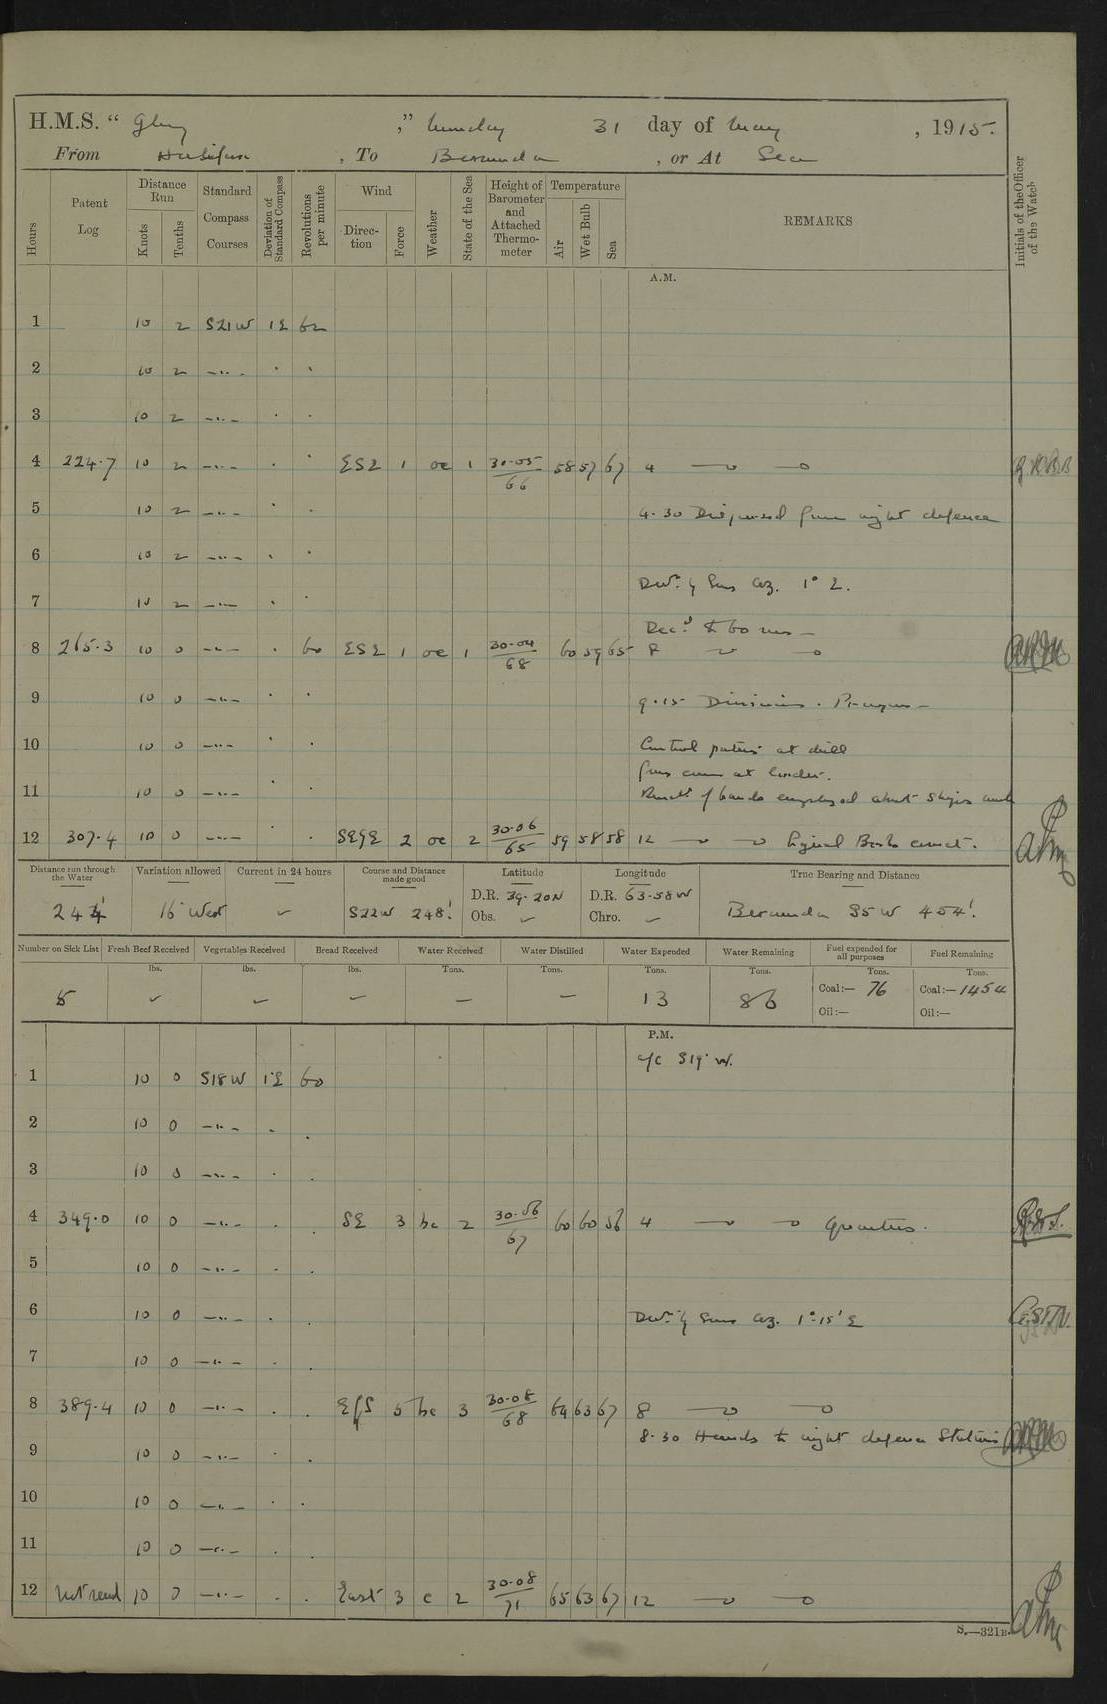 H.M.S. " Glory ," Monday 31 day of May , 1915.
From Halifax , To Bermuda , or At Sea
Hours Patent Log Distance Run Knots Tenths Standard Compass Courses Deviation of Standard Compass Revolutions per minute Wind Direction Force Weather State of the Sea Height of Barometer and Attached Thermometer Temperature Air Wet Bulb Sea REMARKS Initials of the Officer of the Watch
A.M.
1 10 2 S21W 1E 62
2 10 2 —..— . .
3 10 2 —..— . .
4 224.7 10 2 —..— . . ESE 1 oc 1 30.05/66 58 57 67 4
5 10 2 —..— . . 4.30 Dispersed from night defence
6 10 2 —..— . .
Devn. by Suns Az. 1° E.
7 10 2 —..— . .
Decd. to 60 revs —
8 265.3 10 0 —..— . 60 ESE 1 oc 1 30.04/68 60 59 65 8
9 10 0 —..— . . 9.15 Divisions. Prayers —
10 10 0 —..— . . Control parties at drill
Guns crews at loader.
11 10 0 —..— . . Remdr. of hands employed about Ships work
12 307.4 10 0 —..— . . SE&E 2 oc 2 30.06/65 59 58 58 12 Signal Books correct.
Distance run through the Water Variation allowed Current in 24 hours Course and Distance made good Latitude Longitude True Bearing and Distance
244' 16° West S22W 248'. D.R. 39.20N Obs. D.R. 63.58W Chro. Bermuda S5W 454'.
Number on Sick List Fresh Beef Received Vegetables Received Bread Received Water Received Water Distilled Water Expended Water Remaining Fuel expended for all purposes Fuel Remaining
lbs. lbs. lbs. Tons. Tons. Tons. Tons. Tons. Tons.
5 13 86 Coal:— 76 Coal:— 1454
Oil:— Oil:—
P.M.
c/c S19°W.
1 10 0 S18W 1°E 60
2 10 0 —..— . .
3 10 0 —..— . .
4 349.0 10 0 —..— . . SE 3 bc 2 30.06/67 60 60 56 4 Quarters.
5 10 0 —..— . .
6 10 0 —..— . . Devn. by Suns Az. 1°-15' E
7 10 0 —..— . .
8 389.4 10 0 —..— . . E/S 5 bc 3 30.08/68 64 63 67 8
8.30 Hands to night defence Stations
9 10 0 —..— . .
10 10 0 —..— . .
11 10 0 —..— . .
12 Not read 10 0 —..— . . East 3 c 2 30.08/71 65 63 67 12
S.—321B.